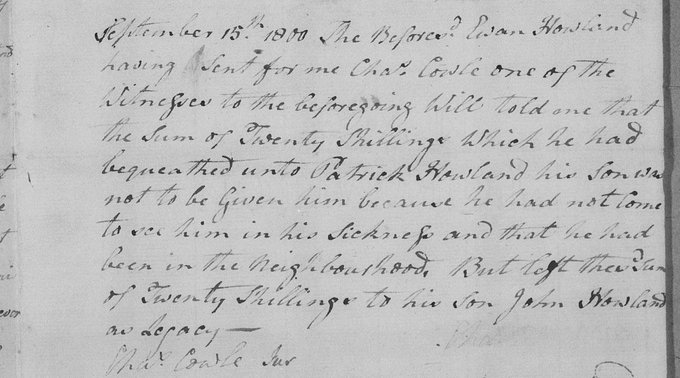 September 15th 1800 The Beforesd Ewan Howland
having Sent for me Chas Cowle one of the
Witnesses to the beforegoing Will told me that
the Sum of Twenty Shillings Which he had
bequeathed unto Patrick Howland his Son was
not to be Given him because he had not Come
to see him in his Sickness and that he had
been in the Neighbourhood, But left the sd Sum
of Twenty Shillings to his son John Howland
as Legacy —
Chas Cowle Jur